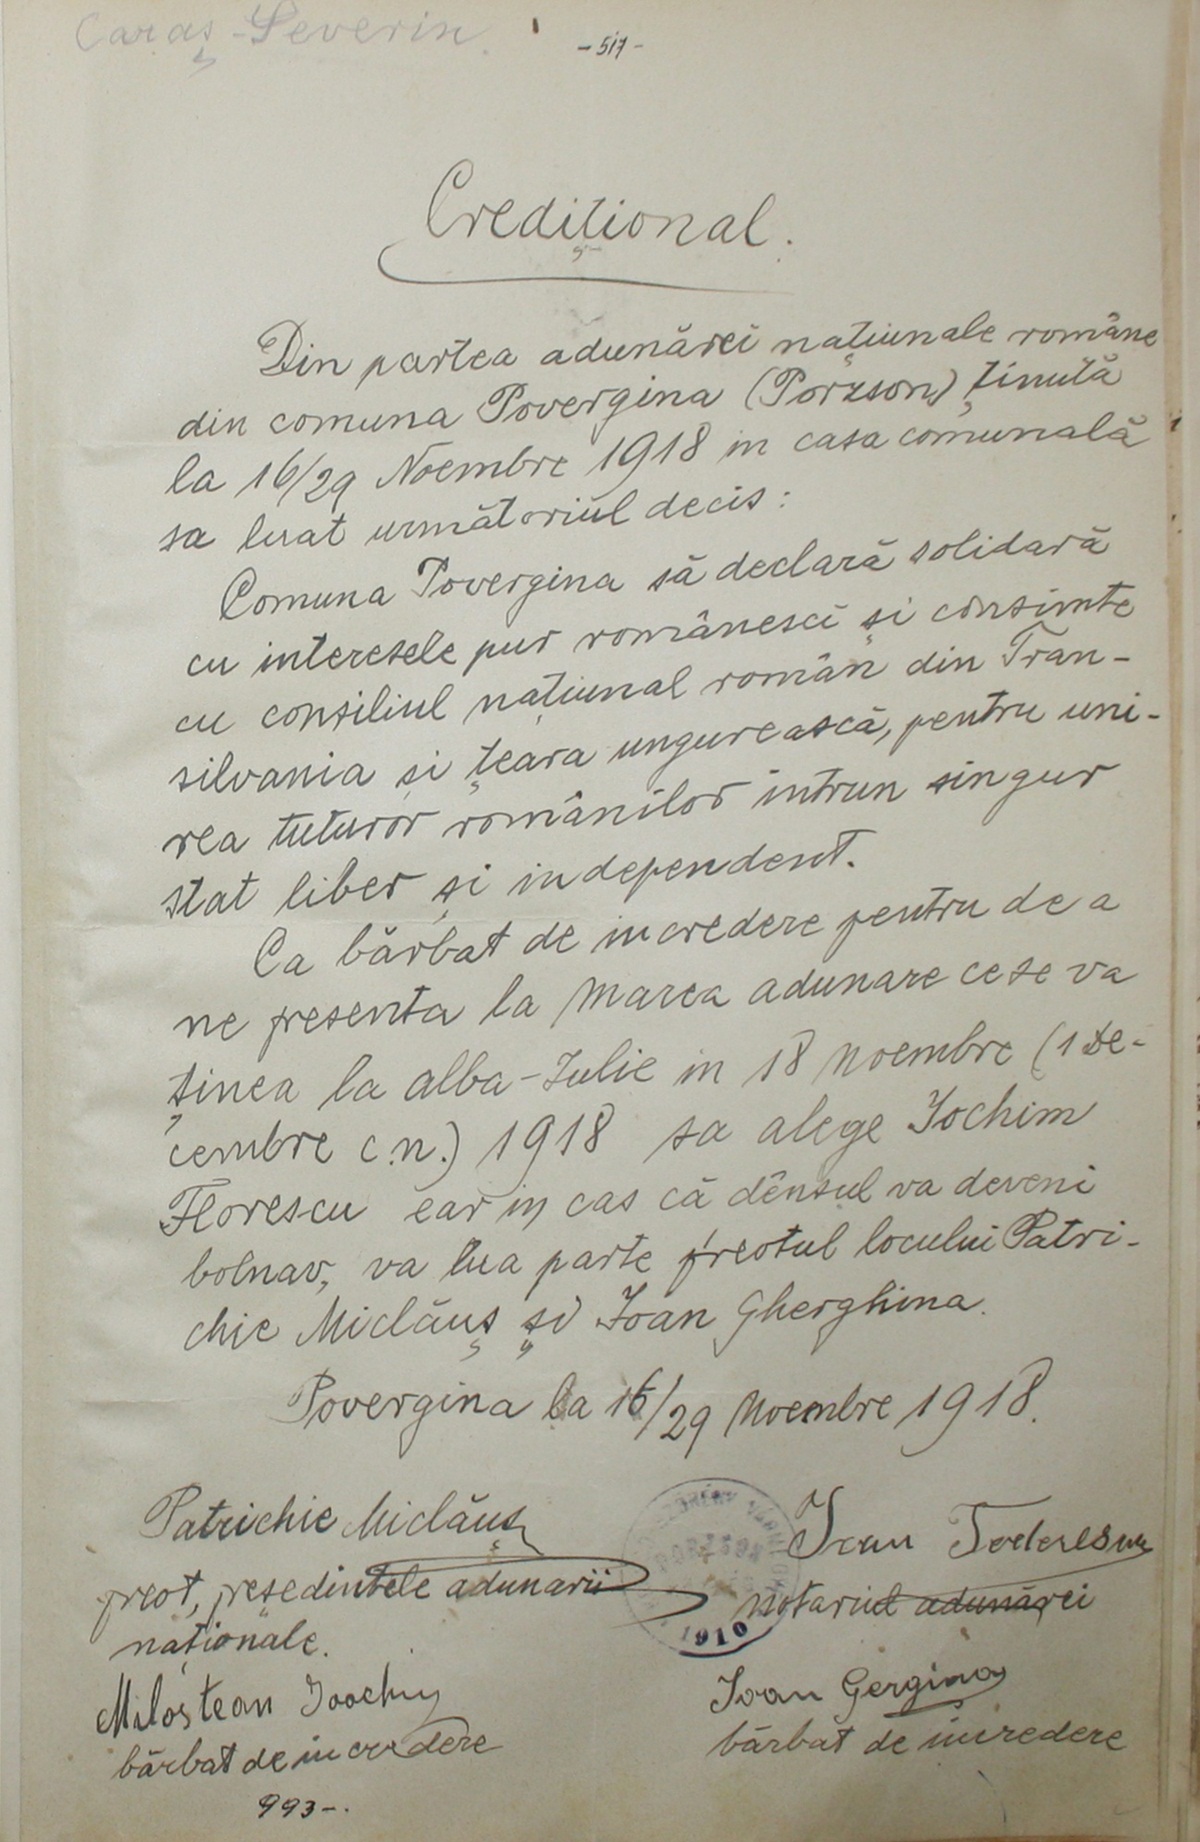 Caraș-Severin.
- 517 -
Credițional.
Din partea adunărei națiunale române
din comuna Povergina (Porzson) ținută
la 16/29 Noembre 1918 in casa comunală
sa luat următoriul decis:
Comuna Povergina să declară solidară
cu interesele pur românesci și consimte
cu consiliul națiunal român din Tran-
silvania și țeara ungurească, pentru uni-
rea tuturor românilor intrun singur
stat liber și independent.
Ca bărbat de incredere pentru de a
ne presenta la marea adunare ce se va
ținea la alba-Iulie in 18 Noembre (1 De-
cembre c.n.) 1918 sa alege Iochim
Florescu ear in cas că dênsul va deveni
bolnav, va lua parte preotul locului Patri-
chie Miclăuș și Ioan Gherghina.
Povergina la 16/29 Noembre 1918.
Patrichie Miclăuș
preot, președintele adunarii
naționale.
Ioan Toderescu
notariul adunărei
VÁRM
PORZSON
1910
Miloștean Ioochim
bărbat de incredere
Ioan Gergina
bărbat de incredere
993-.